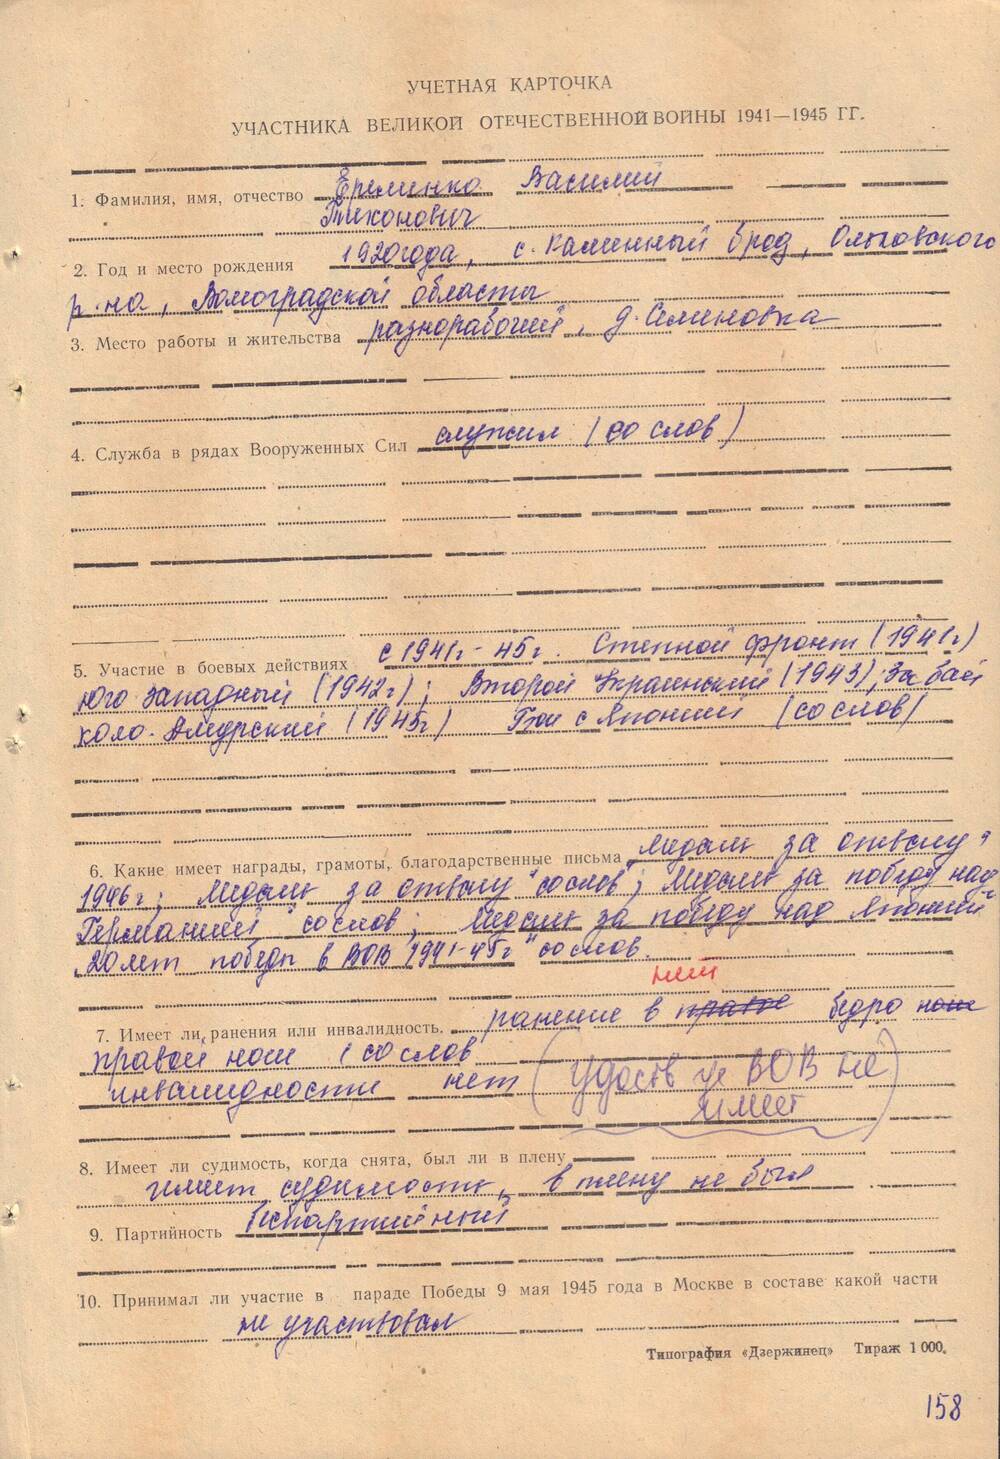 УЧЕТНАЯ КАРТОЧКА
УЧАСТНИКА ВЕЛИКОЙ ОТЕЧЕСТВЕННОЙ ВОЙНЫ 1941—1945 ГГ.
1. Фамилия, имя, отчество Ереминко Василий
Тихонович
2. Год и место рождения 1920 года, с. Каминный брод, Ольховского
р-на, Волгоградской области
3. Место работы и жительства разнорабочий, д. Семиновка
4. Служба в рядах Вооруженных Сил служил (со слов)
5. Участие в боевых действиях с 1941г-45г. Степной фронт (1941г)
Юго Западный (1942г); Второй Украинский (1943); Забай
коло-Амурский (1945г) Бои с Японией (со слов)
6. Какие имеет награды, грамоты, благодарственные письма „Медаль за отвагу"
1946г; Медаль за отвагу" со слов; Медаль за победу над
Германией" со слов; Медаль за победу над Японией"
„20 лет победы в ВОВ 1941-45г" со слов.
нет
7. Имеет ли ранения или инвалидность. ранение в правое бедро ноги
правой ноги (со слов
инвалидности нет (удоств уч ВОВ не
имеет)
8. Имеет ли судимость, когда снята, был ли в плену
имеет судимость, в плену не был
9. Партийность беспартийный
10. Принимал ли участие в параде Победы 9 мая 1945 года в Москве в составе какой части
не участвовал
Типография «Дзержинец» Тираж 1000.
158